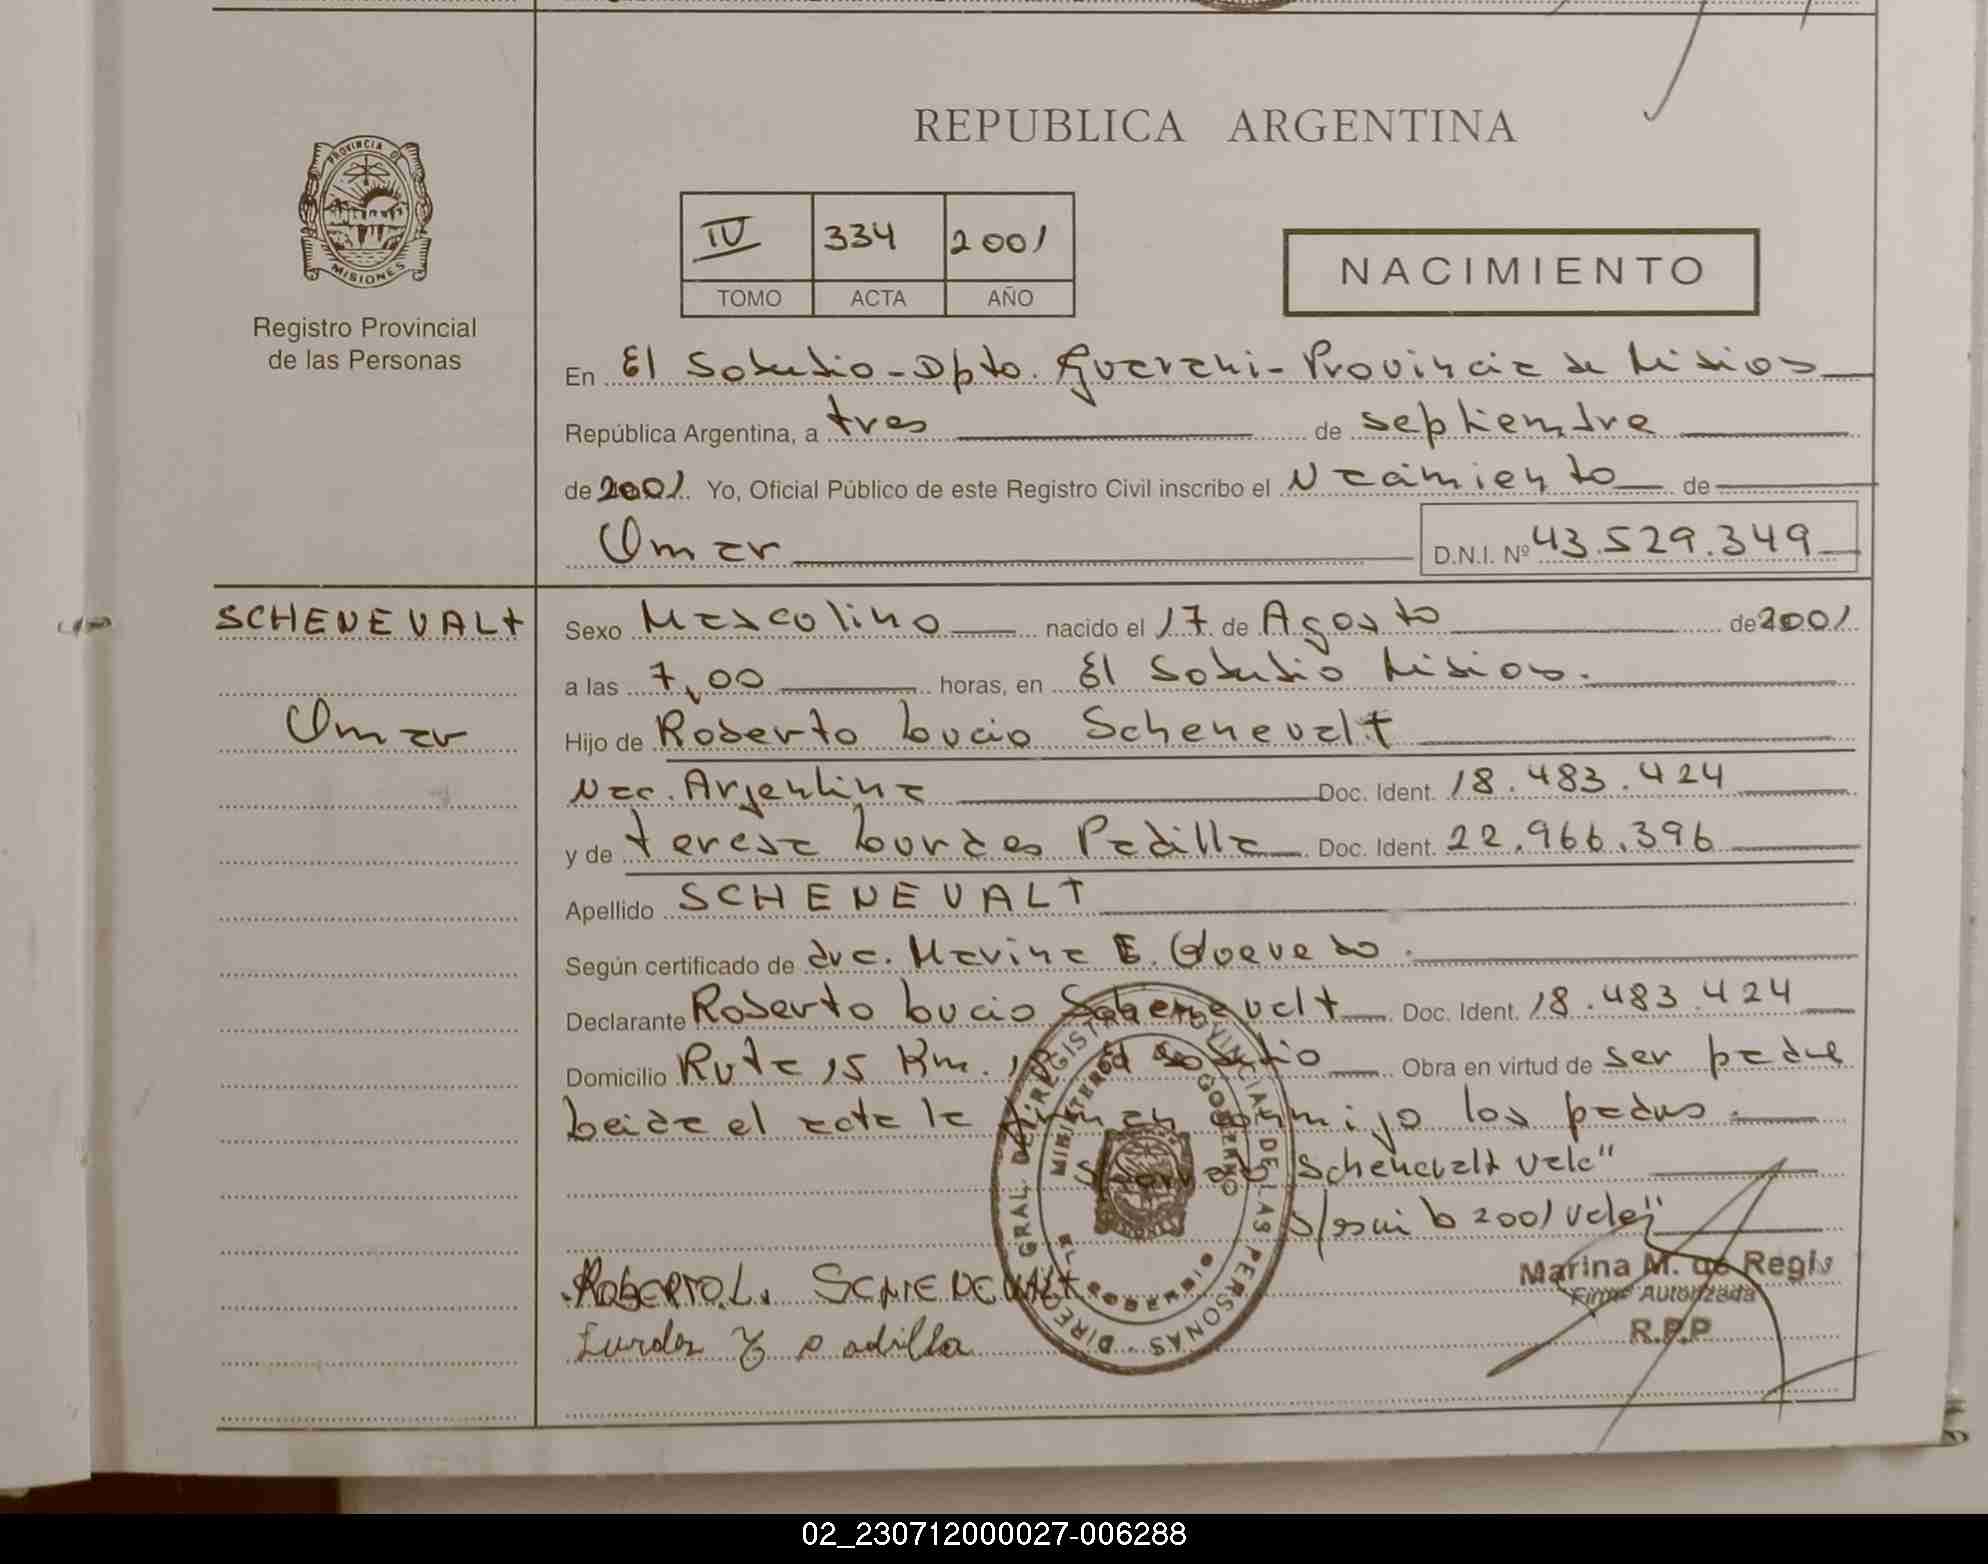 REPUBLICA ARGENTINA
PROVINCIA DE
MISIONES
Registro Provincial
de las Personas
IV 334 2001
TOMO ACTA AÑO
NACIMIENTO
En El Soberbio - Dpto. Guarani - Provincia de Misions
República Argentina, a tres de septiembre
de 2001. Yo, Oficial Público de este Registro Civil inscribo el Nacimiento de
Omar D.N.I. Nº 43.529.349
SCHENEVALt
Omar
Sexo Masculino nacido el 17 de Agosto de 2001
a las 7,00 horas, en El Soberbio Misions.
Hijo de Roberto Lucio Schenevalt
Nac. Argentina Doc. Ident. 18.483.424
y de teresa Lourdes Padilla Doc. Ident. 22.966.396
Apellido SCHENEVALT
Según certificado de dra. Marina E. Quevedo.
Declarante Roberto Lucio Schenevalt Doc. Ident. 18.483.424
Domicilio Ruta 15 Km. El Soberbio Obra en virtud de ser padre
Leida el acta la firman conmigo los padres.
Schenevalt vale"
2001 vale"
ROBERTO.L. SCHENEVALT
Lurdes padilla
DIREC. GRAL. DEL REGISTRO PROVINCIAL DE LAS PERSONAS
MINISTERIO GOBIERNO
EL SOBERBIO
Marina M. de Regis
Firma Autorizada
R.P.P
02_230712000027-006288